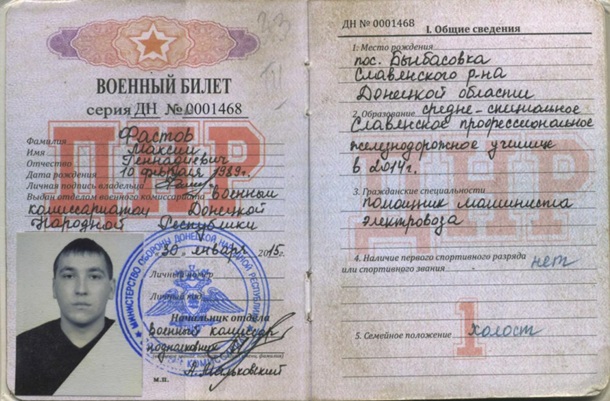 ВОЕННЫЙ БИЛЕТ
серия ДН № 0001468
Фамилия Фастов
Имя Максим
Отчество Геннадиевич
Дата рождения 10 февраля 1989г.
Личная подпись владельца
Выдан отделом военного комиссариата Военным
комиссариатом Донецкой
Народной Республики
30 января 2015г.
Личный номер
Личный код
Начальник отдела
военный комиссар
подполковник
М.П.
МИНИСТЕРСТВО ОБОРОНЫ ДОНЕЦКОЙ НАРОДНОЙ РЕСПУБЛИКИ
ДНР
ДН № 0001468
I. Общие сведения
1. Место рождения
пос. Былбасовка
Славянского р-на
Донецкой области
2. Образование средне-специальное
Славянское профессиональное
железнодорожное училище
в 2014г.
3. Гражданские специальности
помощник машиниста
электровоза
4. Наличие первого спортивного разряда
или спортивного звания нет
5. Семейное положение холост
ДНР
1